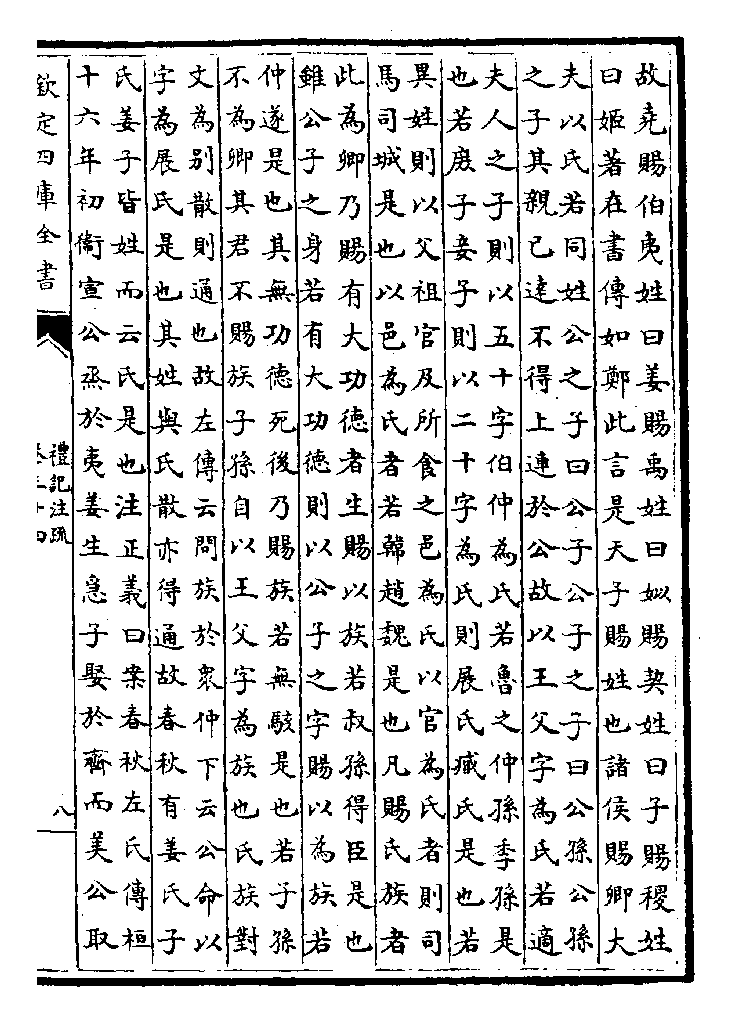 故堯賜伯夷姓曰姜賜禹姓曰姒賜契姓曰子賜稷姓
曰姬著在書傳如鄭此言是天子賜姓也諸侯賜卿大
夫以氏若同姓公之子曰公子公子之子曰公孫公孫
之子其親已逺不得上連於公故以王父字為氏若適
夫人之子則以五十字伯仲為氏若魯之仲孫季孫是
也若庻子妾子則以二十字為氏則展氏臧氏是也若
異姓則以父祖官及所食之邑為氏以官為氏者則司
馬司城是也以邑為氏者若韓趙魏是也凡賜氏族者
此為卿乃賜有大功德者生賜以族若叔孫得臣是也
雖公子之身若有大功德則以公子之字賜以為族若
仲遂是也其無功德死後乃賜族若無駭是也若子孫
不為卿其君不賜族子孫自以王父字為族也氏族對
文為別散則通也故左傳云問族於衆仲下云公命以
字為展氏是也其姓與氏散亦得通故春秋有姜氏子
氏姜子皆姓而云氏是也注正義曰案春秋左氏傳桓
十六年初衞宣公烝於夷姜生急子娶於齊而美公取
欽定四庫全書
禮記注疏
卷三十四
八